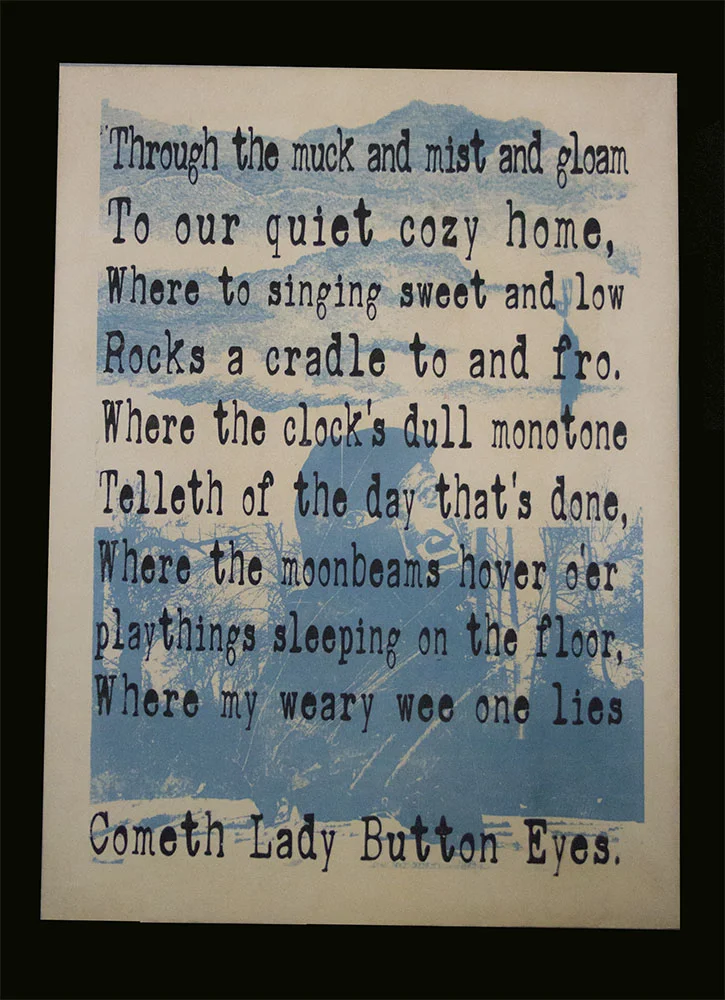 "Through the muck and mist and gloam
To our quiet cozy home,
Where to singing sweet and low
Rocks a cradle to and fro.
Where the clock's dull monotone
Telleth of the day that's done,
Where the moonbeams hover o'er
playthings sleeping on the floor,
Where my weary wee one lies
Cometh Lady Button Eyes.